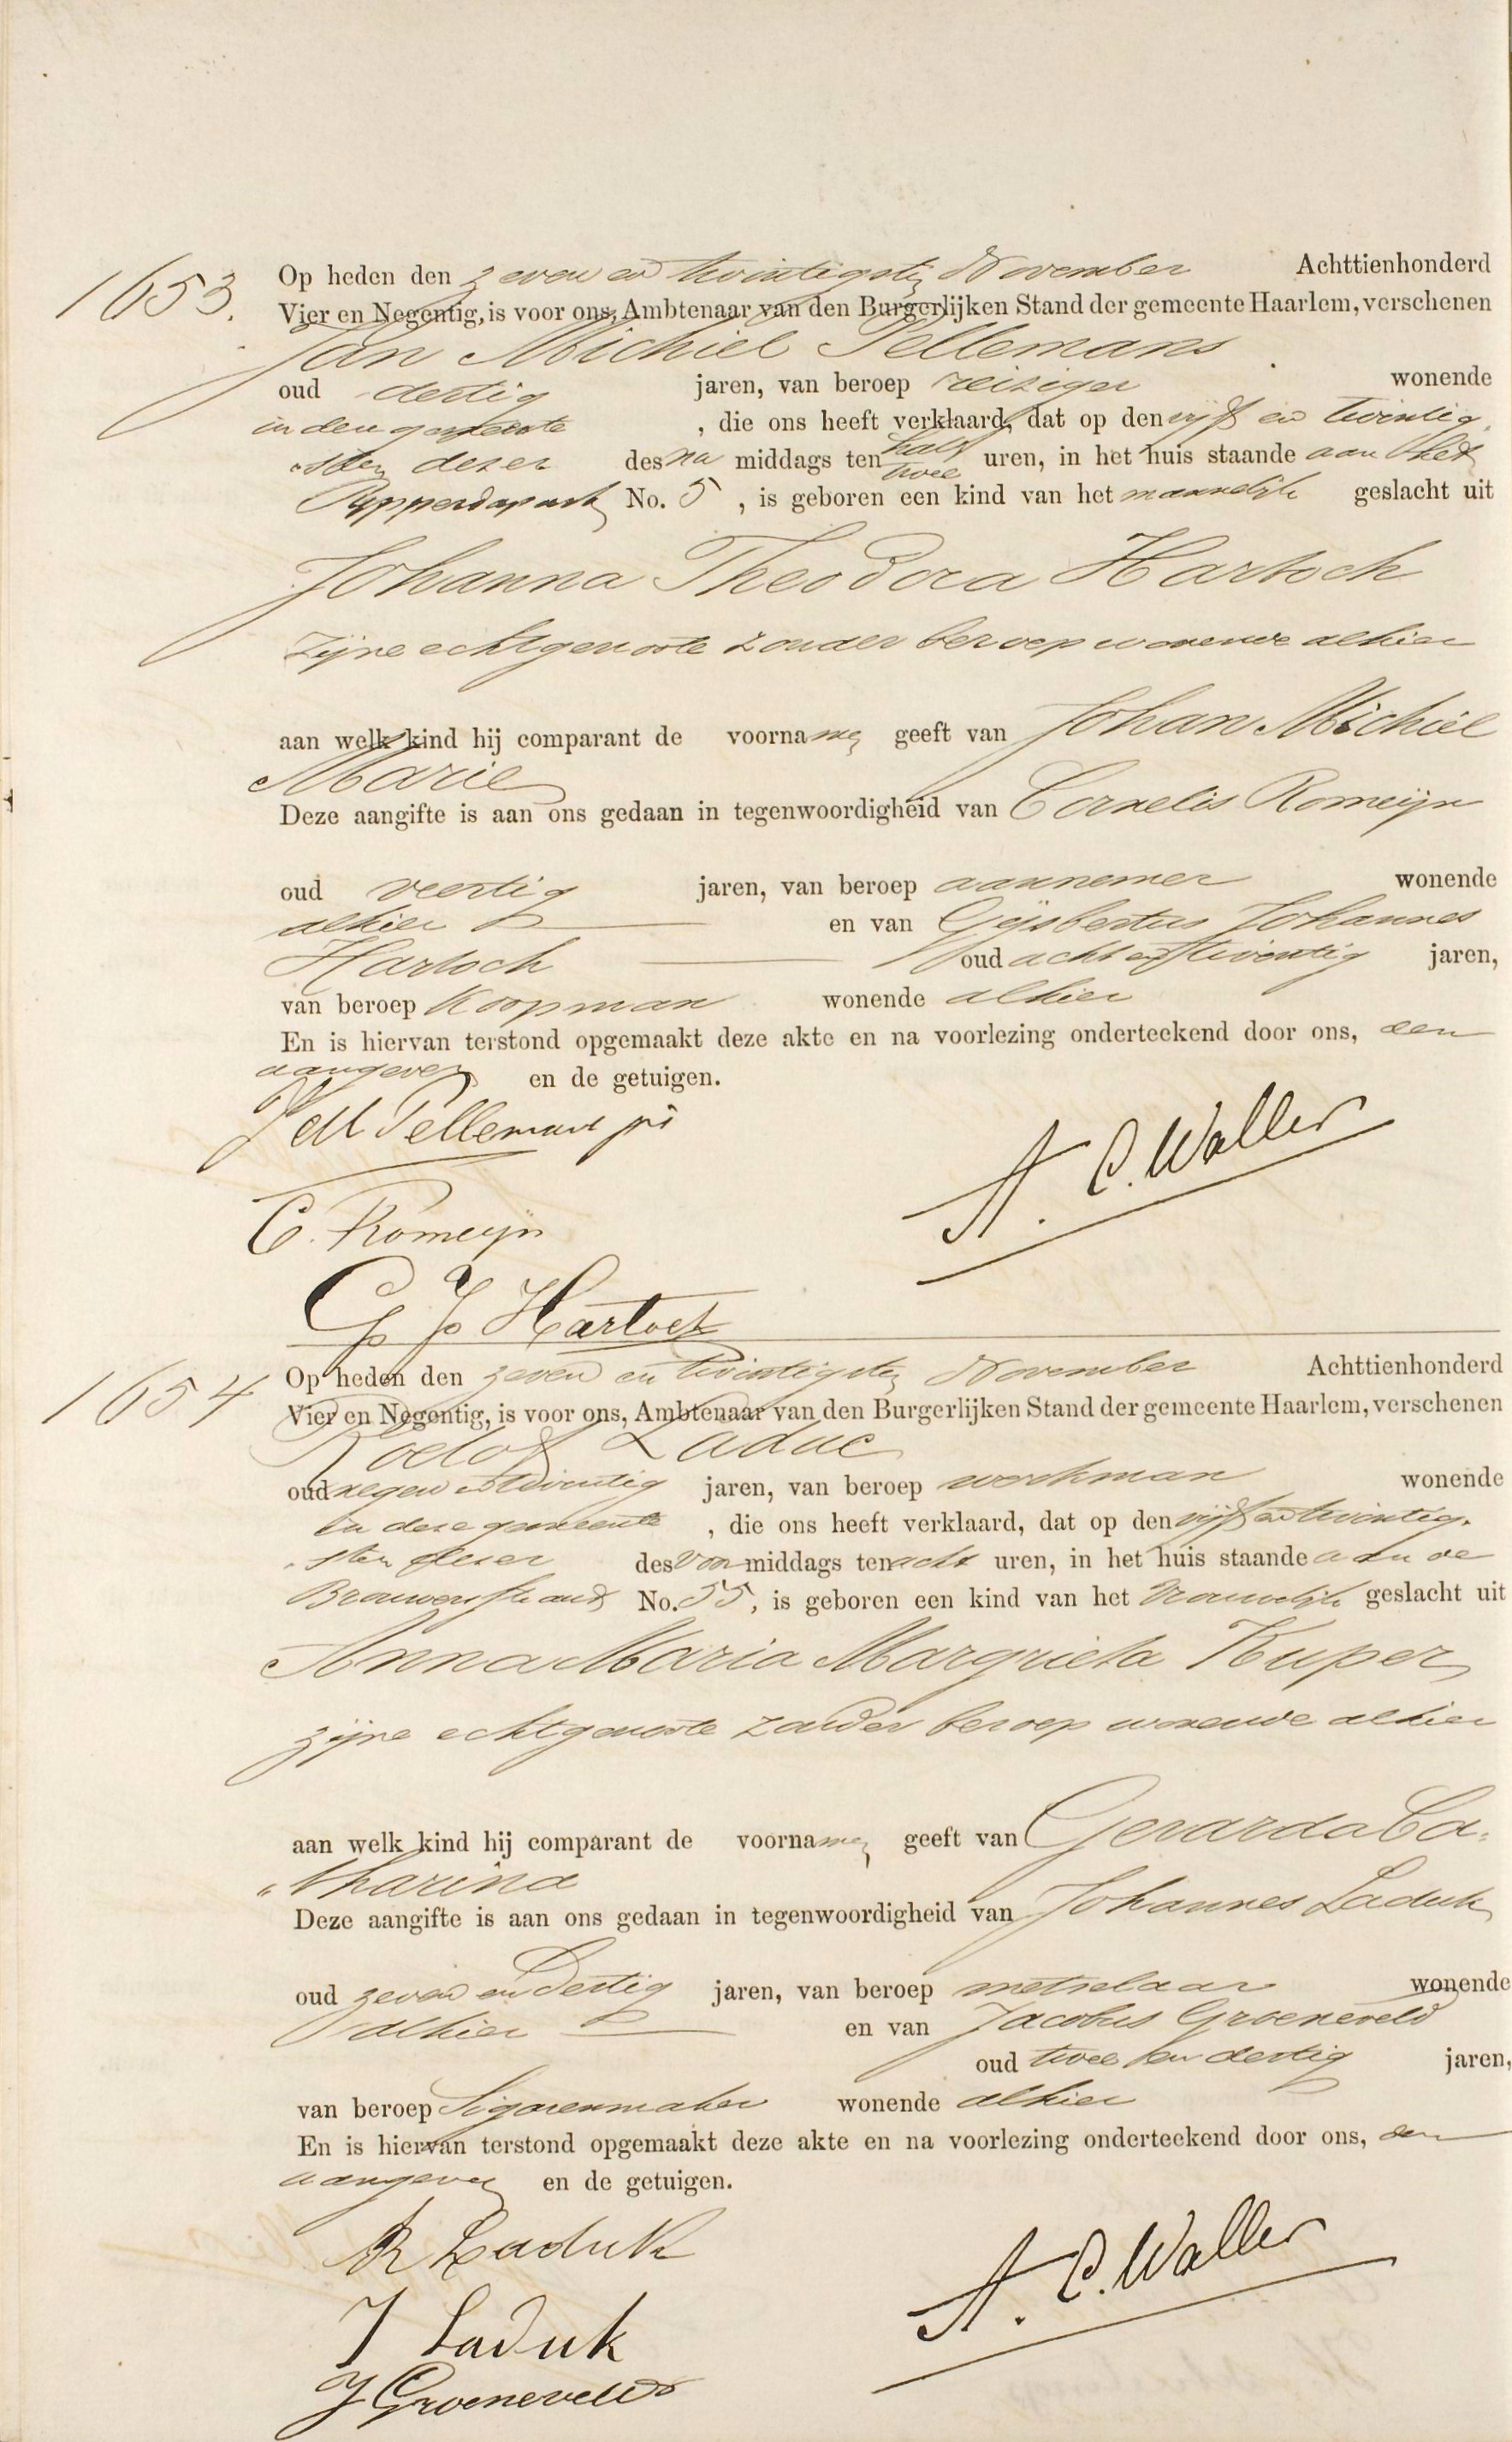 1653. Op heden den zeven en twintigsten November Achttienhonderd
Vier en Negentig, is voor ons, Ambtenaar van den Burgerlijken Stand der gemeente Haarlem, verschenen
Jan Michiel Pellemans
oud dertig jaren, van beroep reiziger wonende
in deze gemeente , die ons heeft verklaard, dat op den vijf en twintig
sten dezer des na middags ten half twee uren, in het huis staande aan het
Ripperdapark No. 5 , is geboren een kind van het mannelijk geslacht uit
Johanna Theodora Hartoch
zijne echtgenoote zonder beroep wonende alhier
aan welk kind hij comparant de voornamen geeft van Johan Michiel
Marie
Deze aangifte is aan ons gedaan in tegenwoordigheid van Cornelis Romeijn
oud veertig jaren, van beroep aannemer wonende
alhier en van Gijsbertus Johannes
Hartoch oud acht en twintig jaren,
van beroep Koopman wonende alhier
En is hiervan terstond opgemaakt deze akte en na voorlezing onderteekend door ons, den
aangever en de getuigen.
J M Pellemans jr
A. C. Waller
C. Romeijn
G J Hartoch
1654 Op heden den zeven en twintigsten November Achttienhonderd
Vier en Negentig, is voor ons, Ambtenaar van den Burgerlijken Stand der gemeente Haarlem, verschenen
Roelof Laduc
oud negen en twintig jaren, van beroep werkman wonende
in deze gemeente , die ons heeft verklaard, dat op den vijf en twintig
sten dezer des voor middags ten acht uren, in het huis staande aan de
Brouwerskade No. 55, is geboren een kind van het vrouwelijk geslacht uit
Anna Maria Margrieta Kuper
zijne echtgenoote zonder beroep wonende alhier
aan welk kind hij comparant de voornamen geeft van Gerarda Ca-
tharina
Deze aangifte is aan ons gedaan in tegenwoordigheid van Johannes Laduk
oud zeven en dertig jaren, van beroep metselaar wonende
alhier en van Jacobus Groeneveld
oud twee en dertig jaren,
van beroep Sigarenmaker wonende alhier
En is hiervan terstond opgemaakt deze akte en na voorlezing onderteekend door ons, den
aangever en de getuigen.
R Laduk
A. C. Waller
J Laduk
J Groeneveld